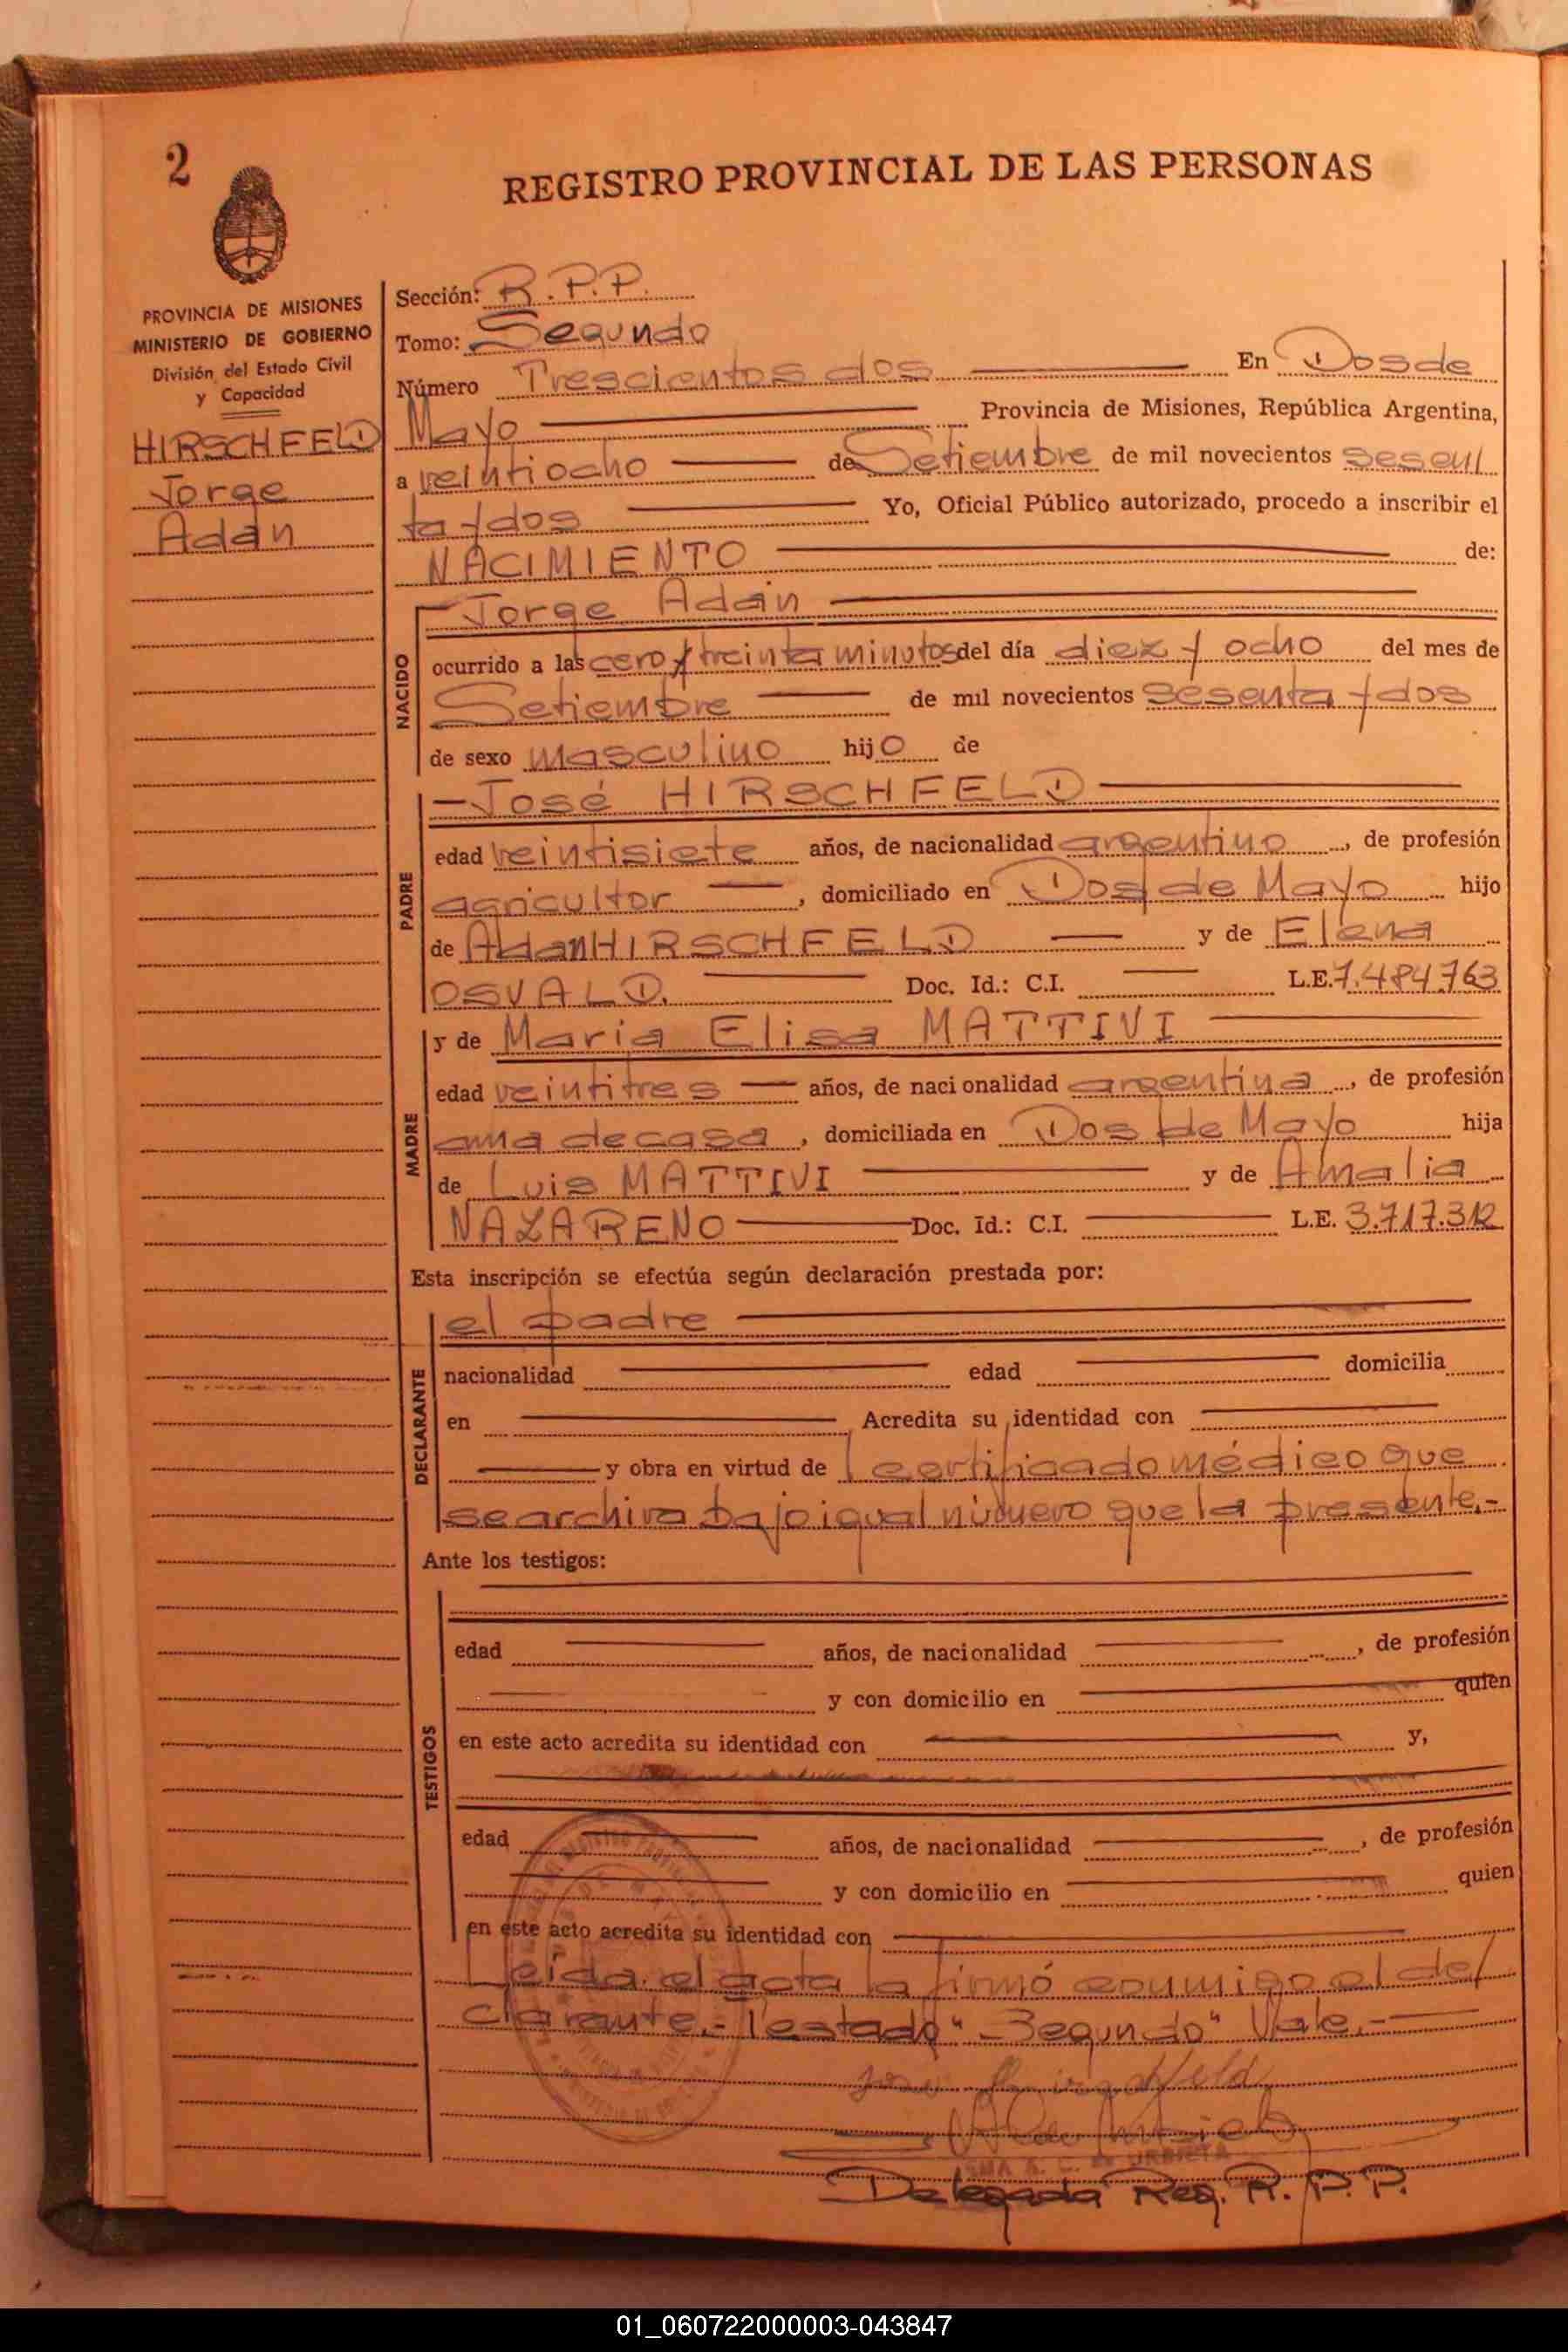 2
REGISTRO PROVINCIAL DE LAS PERSONAS
PROVINCIA DE MISIONES
MINISTERIO DE GOBIERNO
División del Estado Civil
y Capacidad
HIRSCHFELD
Jorge
Adán
Sección: R.P.P.
Tomo: Segundo
Número Trescientos dos En Dos de
Mayo Provincia de Misiones, República Argentina,
a veintiocho de Setiembre de mil novecientos sesen
ta y dos Yo, Oficial Público autorizado, procedo a inscribir el
NACIMIENTO de:
NACIDO
Jorge Adán
ocurrido a las cero y treinta minutos del día diez y ocho del mes de
Setiembre de mil novecientos sesenta y dos
de sexo masculino hijo de
PADRE
José HIRSCHFELD
edad veintisiete años, de nacionalidad argentino, de profesión
agricultor, domiciliado en Dos de Mayo hijo
de Adan HIRSCHFELD y de Elena
OSVALD. Doc. Id.: C.I. L.E. 7.484.763
MADRE
y de Maria Elisa MATTIVI
edad veintitres años, de nacionalidad argentina, de profesión
ama de casa, domiciliada en Dos de Mayo hija
de Luis MATTIVI y de Amalia
NAZARENO Doc. Id.: C.I. L.E. 3.717.312
Esta inscripción se efectúa según declaración prestada por:
DECLARANTE
el padre
nacionalidad edad domicilia
en Acredita su identidad con
y obra en virtud de certificado médico que
se archiva bajo igual número que la presente.-
Ante los testigos:
TESTIGOS
edad años, de nacionalidad, de profesión
y con domicilio en quien
en este acto acredita su identidad con y,
edad años, de nacionalidad, de profesión
y con domicilio en quien
en este acto acredita su identidad con
Leida el acta la firmó conmigo el de/
clarante.- Testado "Segundo" Vale.-
José Hirschfeld
Delegada Reg. R.P.P.
01_060722000003-043847